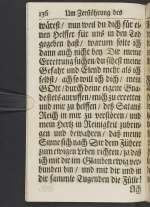 136 Um Zerstöhrung des
wärest/ nun weil du dich für ei-
nen Helffer für uns in den Tod
gegeben hast/ warum solte ich
dann auch nicht bey Dir meine
Errettung suchen/ du sihest meine
Gefahr und Elend mehr als ich
selbst/ ach so woll
GOtt/ durch deine eigene Gna-
de
und mir zu helffen/ deß Satans
Reich in mir zu verstöhren/ und
mein Hertz in Reinigkeit zubrin-
gen und bewahren/ daß meine
Sinne sich nach Dir dem Führer
zum ewigen Leben richten/ ja daß
ich mit dir im Glauben ewig ver-
bunden bin/ und mit dir und in
dir sammle Tugenden die Fülle!